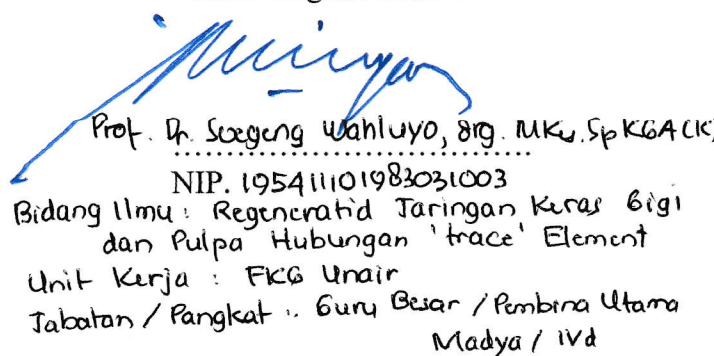 Prof. Dr. Soegeng Wahluyo, drg. MKes. SpKGA (K)
NIP. 195411101983031003
Bidang Ilmu : Regeneratid Jaringan Keras Gigi
dan Pulpa Hubungan 'trace' Element
Unit Kerja : FKG Unair
Jabatan / Pangkat : Guru Besar / Pembina Utama
Madya / IVd